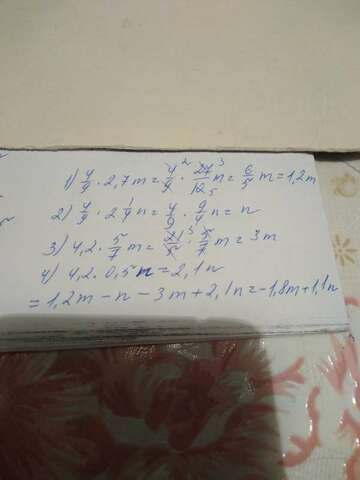 1) 4/9 · 2,7m = 4/9 · 27/10 n = 6/5 m = 1,2m
2) 4/9 · 2 1/4 n = 4/9 · 9/4 n = n
3) 4,2 · 5/7 m = 21/5 · 5/7 m = 3m
4) 4,2 · 0,5n = 2,1n
= 1,2m - n - 3m + 2,1n = -1,8m + 1,1n